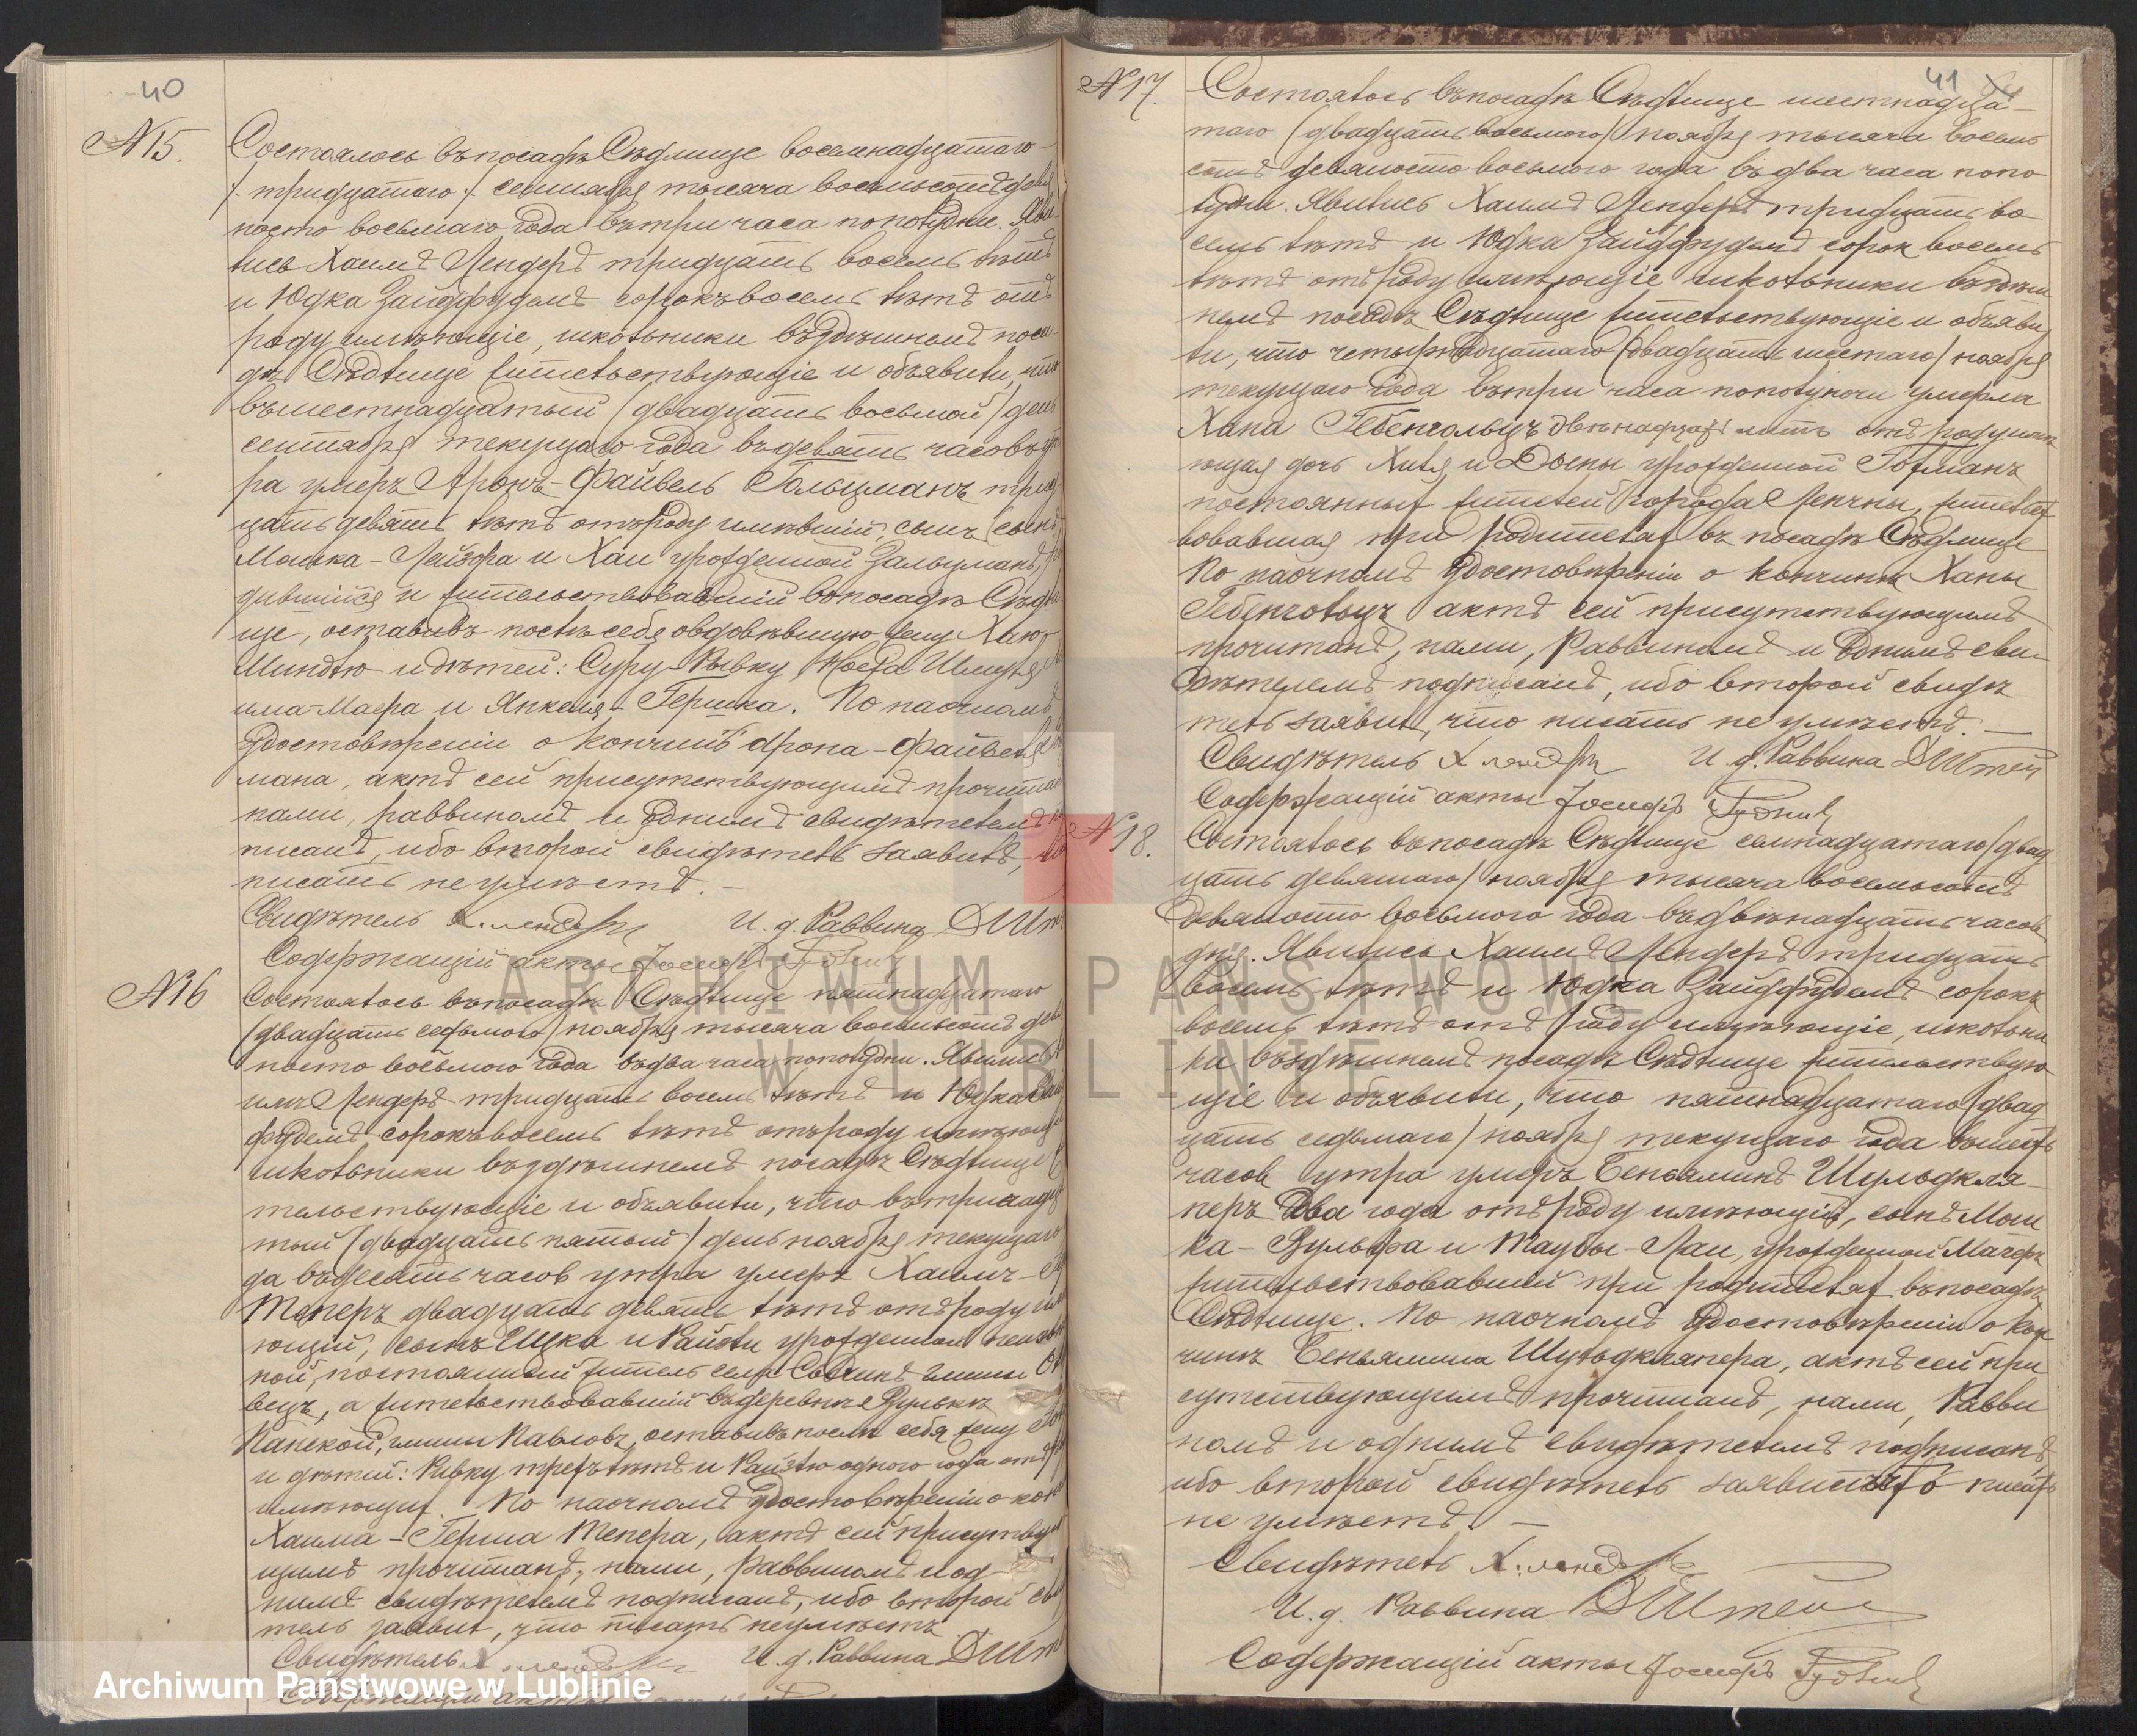 40
N 15.
Состоялось въ посадѣ Сѣдлище восемнадцатаго
/: тридцатаго :/ сентября тысяча восемьсотъ девя
носто восьмаго года въ три часа пополудни. Яви
лись Хаимъ Лендеръ тридцать восемь лѣтъ
и Юдка Зайдфудемъ сорокъ восемь лѣтъ отъ
роду имѣющіе, школьники въ здѣшнемъ поса
дѣ Сѣдлище жительствующіе и объявили, что
въ шестнадцатый (двадцать восьмой) день
сентября текущаго года въ девять часовъ ут
ра умеръ Аронъ-Файвель Гольцманъ трид
цать девять лѣтъ отъ роду имѣвшій, сынъ
Мошка-Лейзора и Хаи урожденной Зальцманъ, ро
дившійся и жительствовавшій въ посадѣ Сѣдли
ще, оставивъ послѣ себя овдовѣвшую жену Хаю-
Миндлю и дѣтей: Суру-Рывку, Шмуля
има-Маера и Янкеля-Гершка. По наочномъ
удостовѣреніи о кончинѣ Арона-Файвеля
мана, актъ сей присутствующимъ прочитанъ
нами, раввиномъ и однимъ свидѣтелемъ
писанъ, ибо второй свидѣтель заявилъ, что
писать не умѣетъ. –
Свидѣтель Х. Лендеръ И. д. Раввина ДШтейн
Содержащій акты Іосифъ
N 16
Состоялось въ посадѣ Сѣдлище пятнадцатаго
(двадцать седьмого) ноября тысяча восемьсотъ девя
носто восьмого года въ два часа пополудни. Явились
имъ Лендеръ тридцать восемь лѣтъ и Юдка Зай
дфудемъ сорокъ восемь лѣтъ отъ роду имѣющіе
школьники въ здѣшнемъ посадѣ Сѣдлище
тельствующіе и объявили, что въ тринадца
тый (двадцать пятый) день ноября текущаго
да въ десять часов утра умеръ Хаимъ-
Теперъ двадцать девять лѣтъ отъ роду имѣ
ющій, сынъ Ицка и Райзли урожденной неизвѣст
ной, постоянный житель села гмины
вецъ, а жительствовавшій въ деревнѣ Вулькѣ
Панской, гмины Павловъ, оставивъ послѣ себя жену
и дѣтей: Ривку трехъ лѣтъ и Райзлю одного года отъ
имѣющих. По наочномъ удостовѣреніи о кон
Хаима-Герша Тепера, актъ сей присутству
щимъ прочитанъ, нами, раввиномъ и од-
нимъ свидѣтелемъ подписанъ, ибо второй сви
тель заявил, что писать не умѣетъ.
Свидѣтель И. д. Раввина ДШт
Содержащій акты
41
N 17.
Состоялось въ посадѣ Сѣдлище шестнадца-
таго (двадцать восьмого) ноября тысяча восемь
сотъ девяносто восьмого года въ два часа попо
лудни. Явились Хаимъ Лендеръ тридцать во
семь лѣтъ и Юдка Зайдфудемъ сорок восемь
лѣтъ отъ роду имѣющіе школьники въ здѣш
немъ посадѣ Сѣдлище жительствующіе и объяви
ли, что четырнадцатаго (двадцать шестаго) ноября
текущаго года въ три часа пополуночи умерла
Хана Гебенгольцъ двѣнадцать лѣтъ отъ роду имѣ
ющая дочь Хиля и Двойны урожденной Гофманъ
постоянных жителей города Ленчны, жительст
вовавшая при родителях въ посадѣ Сѣдлище
По наочномъ удостовѣреніи о кончинѣ Ханы
Гебенгольцъ актъ сей присутствующимъ
прочитанъ, нами, Раввиномъ и однимъ сви-
дѣтелемъ подписанъ, ибо второй свидѣ
тель заявил, что писать не умѣетъ. –
Свидѣтель Х Лендеръ И. д. Раввина ДШтейн
Содержащій акты Іосифъ
N 18.
Состоялось въ посадѣ Сѣдлище семнадцатаго (двад
цать девятаго) ноября тысяча восемьсотъ
девяносто восьмого года въ двѣнадцать часов
дня. Явились Хаимъ Лендеръ тридцать
восемь лѣтъ и Юдка Зайдфудемъ сорокъ
восемь лѣтъ отъ роду имѣющіе, школьни
ки въ здѣшнемъ посадѣ Сѣдлище жительствую
щіе и объявили, что пятнадцатаго (двад
цать седьмаго) ноября текущаго года въ шесть
часов утра умеръ Беньяминъ Шульдкля-
перъ два года отъ роду имѣющій, сынъ Мош
ка-Вульфа и Таубы-Лаи, урожденной Махеръ
жительствовавшій при родителях въ посадѣ
Сѣдлище. По наочномъ удостовѣреніи о кон
чинѣ Беньямина Шульдкляпера, актъ сей при
сутствующимъ прочитанъ, нами, Равви
номъ и однимъ свидѣтелемъ подписанъ,
ибо второй свидѣтель заявилъ что писать
не умѣетъ. –
Свидѣтель Х. Лендеръ
И. д. Раввина ДШтейн
Содержащій акты Іосифъ
ARCHIWUM PAŃSTWOWE
W LUBLINIE
Archiwum Państwowe w Lublinie